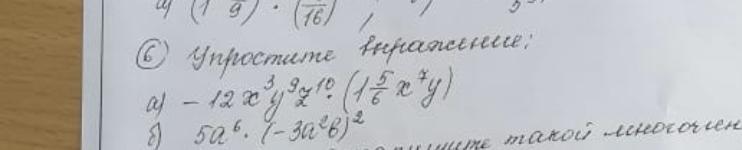 а) (1 /9) · ( /16)
⑥ Упростите выражение:
а) -12x³y⁹z¹⁰ · (1 5/6 x⁷y)
б) 5a⁶ · (-3a²b)²
такой многочлен